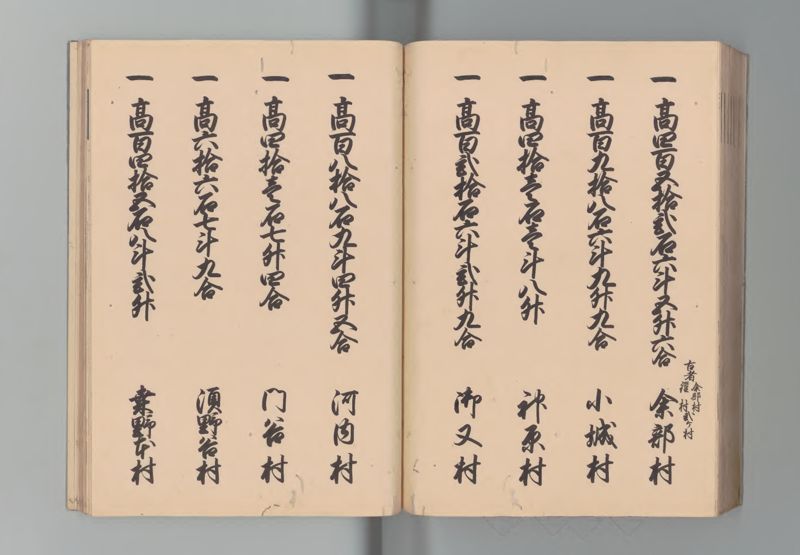 一 高四百五拾弐石六斗五升六合 余部村
古者 余部村
 村弐ケ村
一 高百九拾八石六斗九升九合 小城村
一 高四拾壱石壱斗八升 神原村
一 高百弐拾石六斗弐升九合 御又村
一 高百八拾八石九斗四升五合 河内村
一 高四拾壱石七升四合 門谷村
一 高六拾六石七斗九合 須野谷村
一 高百四拾五石八斗弐升 桑野本村